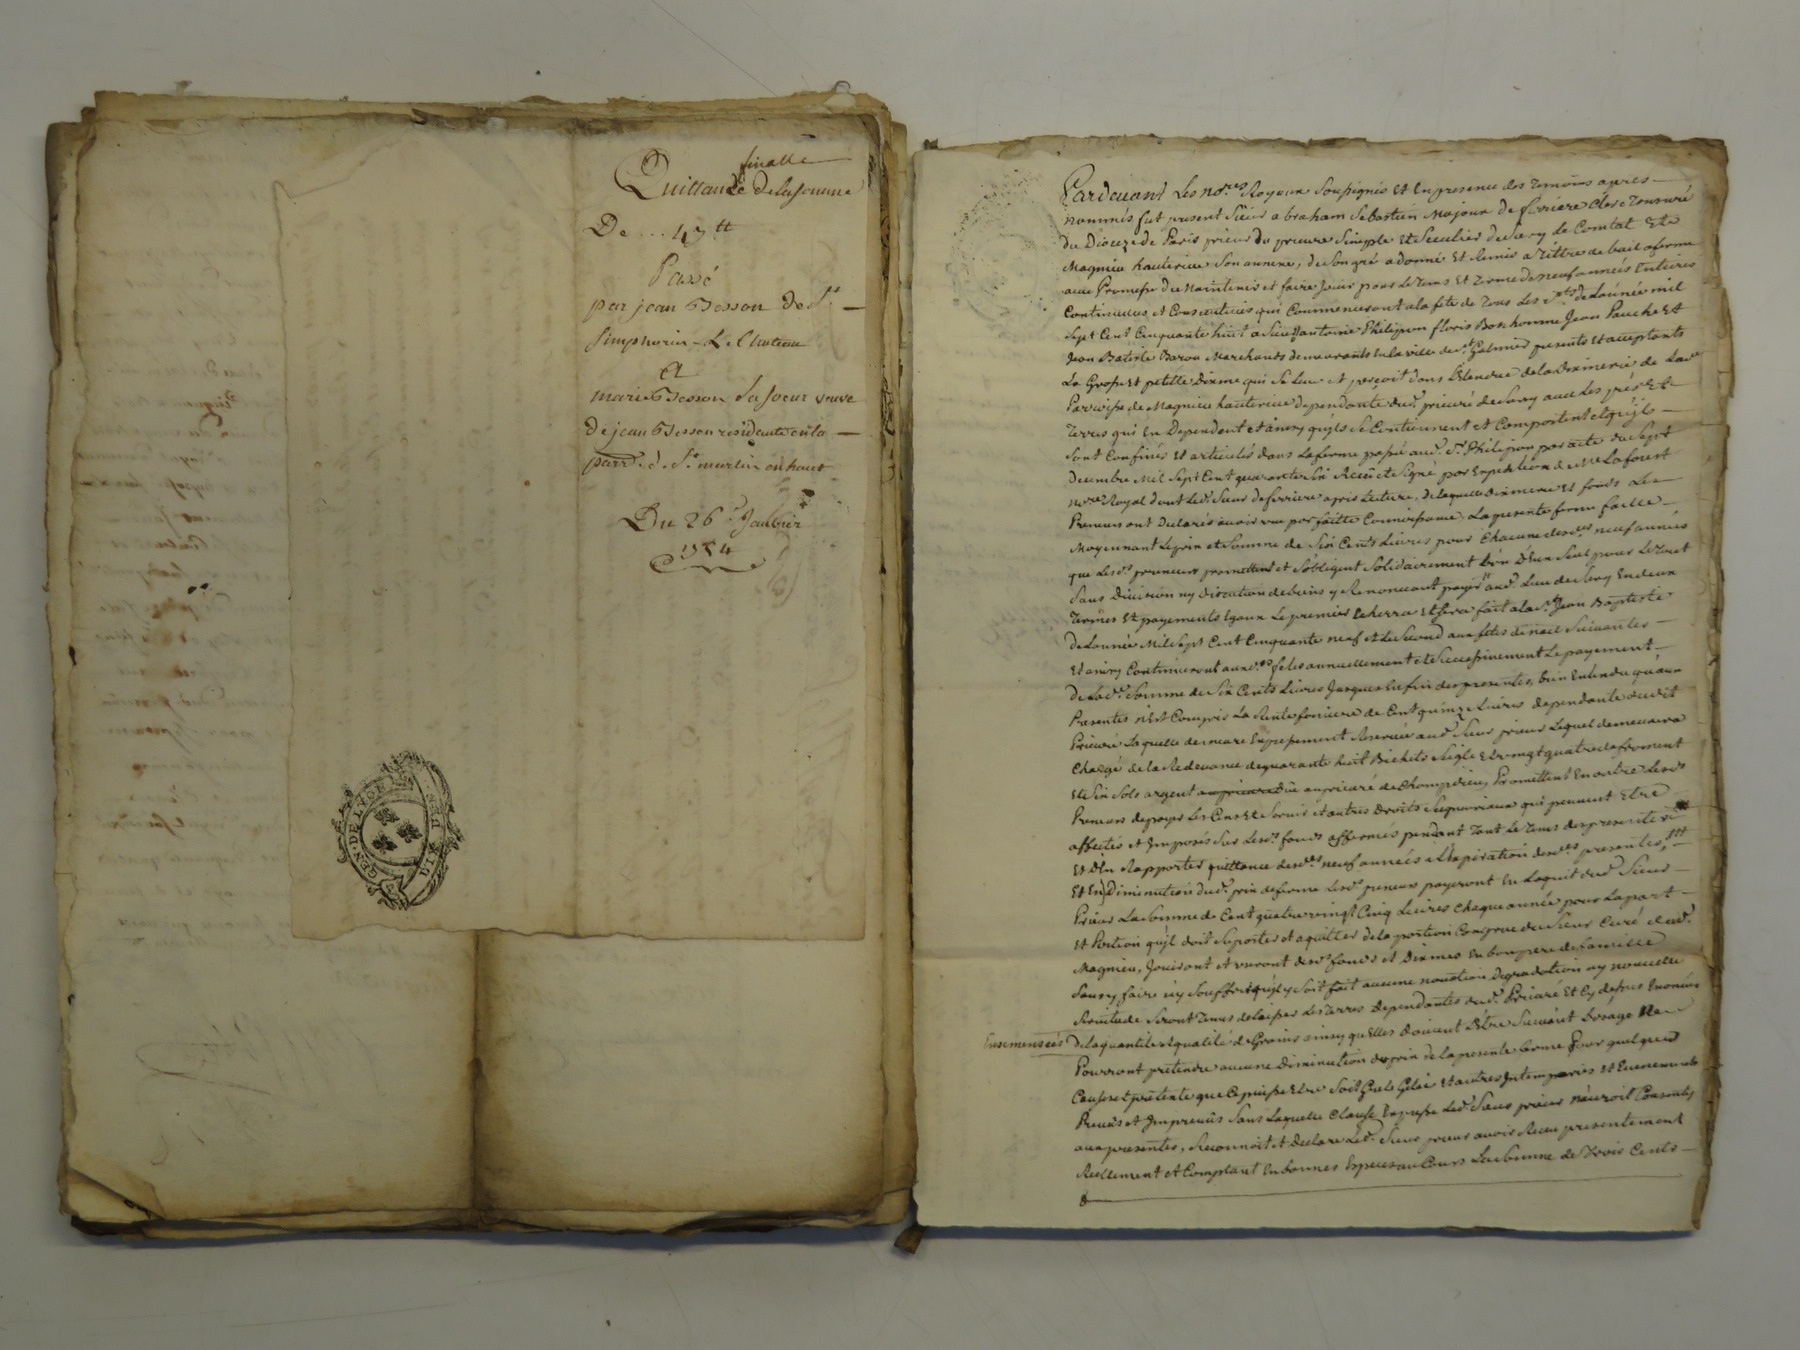 finalle
Quittance de la somme
De ... 47tt
Passé
par jean Besson de St
Simphorin-Le Chateau
A
marie Besson sa soeur veuve
de jean Besson residente en la
parr. de St. martin en haut
Du 26e. Janvier
1754
GEN. DE LYON
Pardevant Les nores. Royaux Soussignés Et En presence des temoins apres
nommés fut present Sieur abraham Sebastien Majoux de ferriere Clerc Tonsuré
du Dioceze de Paris prieur du prieuré Simple Et Seculier de Savy de Comtal Et de
Magnieu hauterive Son annexe, de Son gré a donné Et Remis a Tittre de bail a ferme
avec Promesse de Maintenir et faire Jouir pour Le Tems Et Terme de neuf années Entieres
Continuelles et Consecutives qui Commenceront a la fete de Tous Les Sts. de L'année mil
Sept Cent Cinquante huit a Sieurs antoine Philipon floris Bonhomme Jean Pauche Et
Jean Batiste Baron Marchands demeurants En la ville de St. Galmier presents Et acceptants
La Grosse Et petitte Dixme qui Se Leve et perçoit dans L'Etendue de la Dixmerie de Lad.
Parroisse de Magnieu hauterive dependante dud. prieuré de Savy avec Les prés Et
Terres qui En Dependent et ainsy qu'ils Se Contiennent et Comportent et qu'ils
Sont Confinés Et articulés dans La ferme passé aud. Sr. Philipon par acte du Sept
decembre Mil Sept Cent quarante Six Receu et Signé par Expedition de Me. Laforest
nore. Royal dont Led. Sieur de ferriere apres Lecture, de laquelle dixmerie Et fonds Les
Preneurs ont declarés avoir une parfaitte Connoissance, La presente ferme faitte
Moyennant Le prix et Somme de Six Cents Livres pour Chacune desd. neuf années
que Lesds. preneurs promettent et S'obligent Solidairement L'un d'Eux Seul pour Le Tout
Sans Division ny discution de biens y Renonceant payer aud. Lieu de Savy En deux
Termes Et payements Egaux Le premier Echerra Et Sera fait a la St. Jean Baptiste
de L'année Mil Sept Cent Cinquante neuf et Le Second aux fetes de noel Suivantes
Et ainsy Continueront auxds. fetes annuellement et Successivement Le payement
de Lad. Somme de Six Cents Livres Jusques En fin des presentes, bien Entendu qu'aux
Presentes n'Est Compris La Rente fonciere de Cent quinze Livres dependante dudit
Prieuré Laquelle demeure Expressement Reservée aud. Sieur prieur Lequel demeurera
Chargé de la Redevance de quarante huit Bichets Seigle Et vingt quatre de froment
Et Six Sols argent due au prieuré de Champdieu, Promettent En outre Lesds.
Preneurs de payer Les Cens Et Servis et autres droits Seigneuriaux qui peuvent Etre
affectés et Imposés Sur Lesds. fonds affermés pendant Tout Le Tems des presentes
Et D'En Rapporter quittance desd. neuf années a L'Expiration desd. presentes,
Et En Diminution dud. prix de ferme Lesds. preneurs payeront En L'aquit dud. Sieur
Prieur La Somme de Cent quatre vingt Cinq Livres Chaque année pour La part
Et Portion qu'il doit Suporter et aquitter de la portion Congrue du Sieur Curé dud.
Magnieu, Jouiront et useront desds. fonds et Dixmes En bon pere de famille
Sans y faire n'y Souffrir qu'il y Soit fait aucune novation Degradation ny nouvelle
Servitude Seront Tenus de Laisser Les Terres dependantes dud. Prieuré Et Cy dessus Enoncées
Ensemensées de la quantité et qualité de Grains ainsy qu'Elles doivent L'Etre Suivant L'usage Ne
Pourront pretendre aucune Diminution du prix de la presente ferme Pour quelque
Cause et pretexte que Ce puisse Etre Soit Grele Gelée Et autres Intemperies et Evenements
Prevus et Imprevus Sans Laquelle Clause Expresse Led. Sieur prieur n'auroit Consenty
aux presentes, Reconnoit et declare Led. Sieur prieur avoir Receu presentement
Reellement et Comptant En bonnes Especes au Cours La Somme de Trois Cents